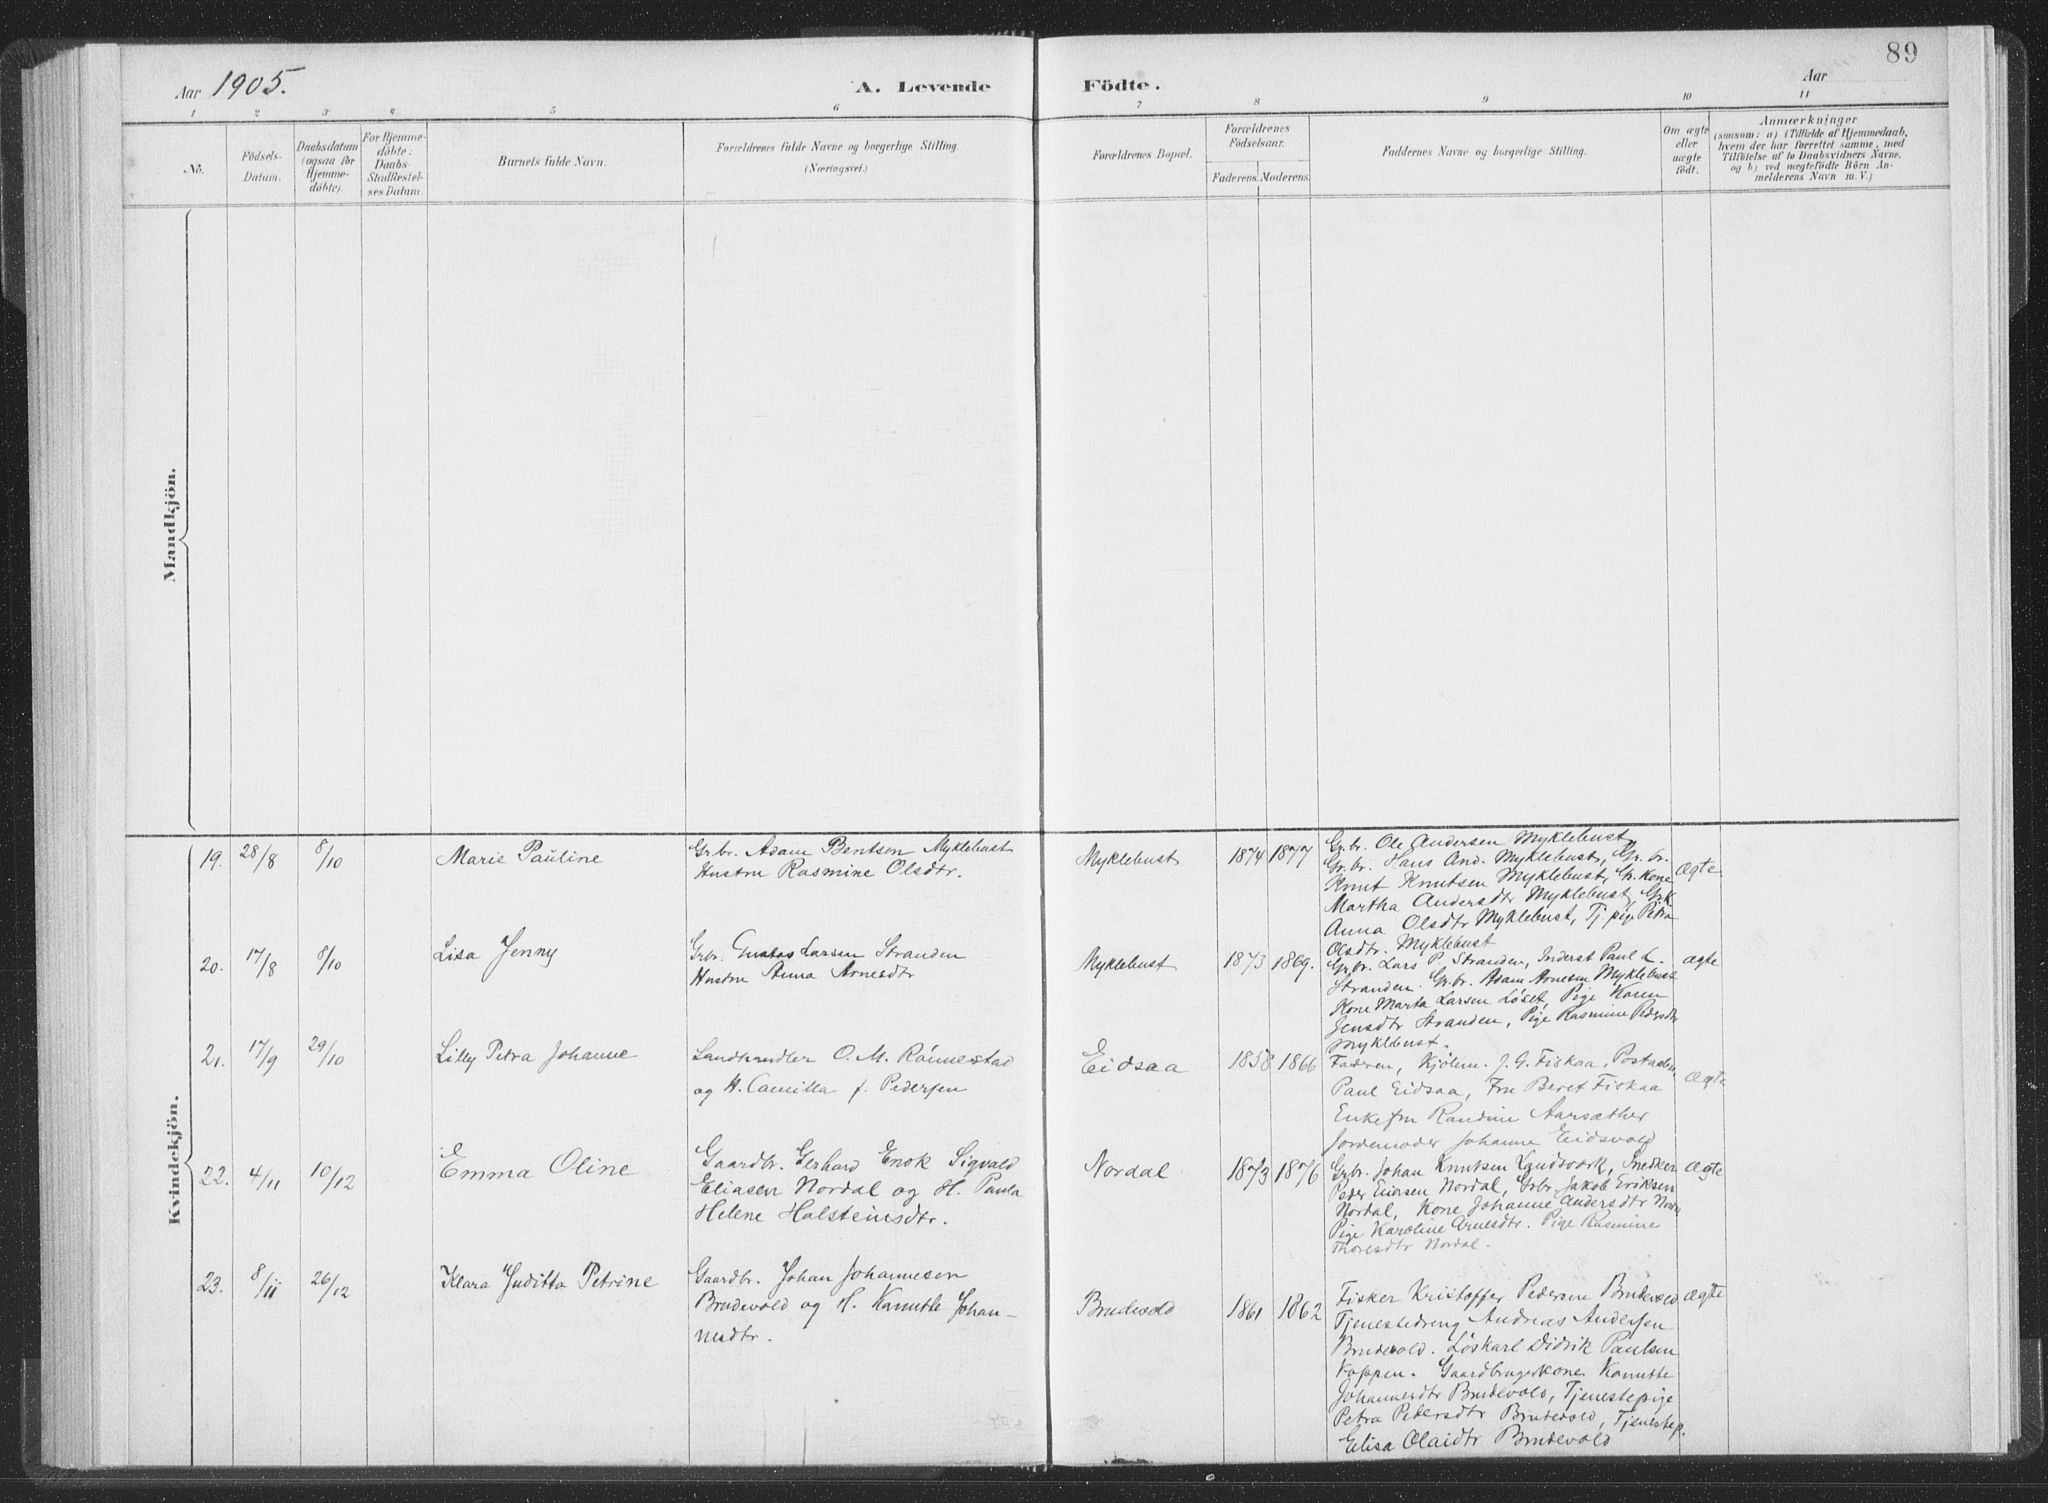 89
Aar 1905.
A. Levende Födte.
Aar
1 2 3 4 5 6 7 8 9 10 11
No.
Födsels-
Datum.
Daabsdatum
(ogsaa for
Hjemme-
döbte).
For Hjemme-
döbte:
Daabs-
Stadfestel-
ses Datum.
Barnets fulde Navn.
Forældrenes fulde Navne og borgerlige Stilling.
(Næringsvei.)
Forældrenes Bopæl.
Forældrenes
Födselsaar.
Faderens. Moderens.
Faddernes Navne og borgerlige Stilling.
Om ægte
eller
uægte
födt.
Anmærkninger
(saasom: a) i Tilfælde af Hjemmedaab,
hvem der har forrettet samme, med
Tilföielse af to Daabsvidners Navne,
og b) ved uægtefödte Börn An-
melderens Navn m. V.)
Mandkjön.
Kvindekjön.
19. 28/8 8/10
Marie Pauline
Gr.br. Adam Bentsen Myklebust
Hustru Rasmine Olsdtr.
Myklebust
1874 1877
Gr.br. Ole Andersen Myklebust
Gr.br. Hans And. Myklebust, Gr.br.
Knut Knutsen Myklebust, Gr. Kone
Martha Andersdtr Myklebust, Gr.k.
Anna Olsdtr Myklebust, Tj.pige Petra
Olsdtr. Myklebust
Ægte
20. 17/8 8/10
Lisa Jenny
Grbr. Gustav Larsen Stranden
Hustru Anna Arnesdtr
Myklebust
1873 1869.
Gr.br. Lars P. Stranden, Inderst Paul L.
Stranden. Gr.br. Adam Arnesen Myklebust
Kone Marta Larsen Løset, Pige Karen
Jensdtr Stranden, Pige Rasmine Pedersdtr
Myklebust.
Ægte
21. 17/9 29/10
Lilly Petra Johanne
Landhandler O. M. Rønnestad
og H. Camilla f. Pedersen
Eidsaa
1858 1866
Faderen, Kjøbm. J. G. Fiskaa. Postaabn.
Paul Eidsaa, Fru Beret Fiskaa
Enkefru Randine Aarsæther
Jordemoder Johanne Eidsvold
Ægte
22. 4/11 10/12
Emma Oline
Gaardbr. Gerhard Enok Sigvald
Eliasen Nordal og H. Paula
Helene Halsteinsdtr.
Nordal
1873 1876
Grbr. Johan Knutsen Landsværk, Snedker
Peder Nordal, Grbr. Jakob Eriksen
Nordal, Kone Johanne Andersdtr
Pige Karoline Arnesdtr. Pige Rasmine
Thoresdtr Nordal.
Ægte
23. 8/11 26/12
Klara Juditta Petrine
Gaardbr. Johan Johannesen
Brudevold og H. Kanutte Johan-
nesdtr.
Brudevold
1861 1862
Fisker Kristoffer Pedersen Brudevold
Tjenestedreng Andreas Andersen
Brudevold. Løskarl Didrik Paulsen
Koppen. Gaardbrugerkone Kanutte
Johannesdtr Brudevold, Tjenestepige
Petra Pedersdtr Brudevold, Tjenestep.
Elisa Olaidtr Brudevold
Ægte